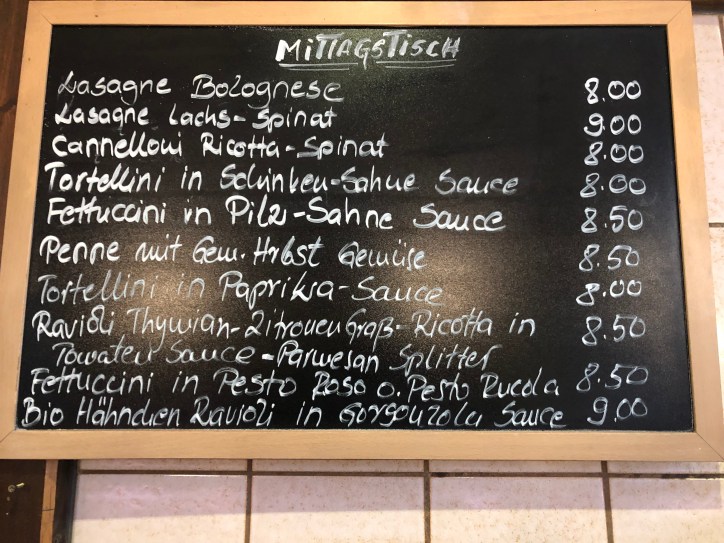 MITTAGSTISCH
Lasagne Bolognese 8.00
Lasagne Lachs-Spinat 9.00
Cannelloni Ricotta-Spinat 8.00
Tortellini in Schinken-Sahne Sauce 8.00
Fettuccini in Pilz-Sahne Sauce 8.50
Penne mit Gem. Hrbst Gemüse 8.50
Tortellini in Paprika-Sauce 8.00
Ravioli Thymian-Zitronen Graß-Ricotta in 8.50
Tomaten Sauce-Parmesan Splitter
Fettuccini in Pesto Roso o. Pesto Rucola 8.50
Bio Hähnchen Ravioli in Gorgonzola Sauce 9.00